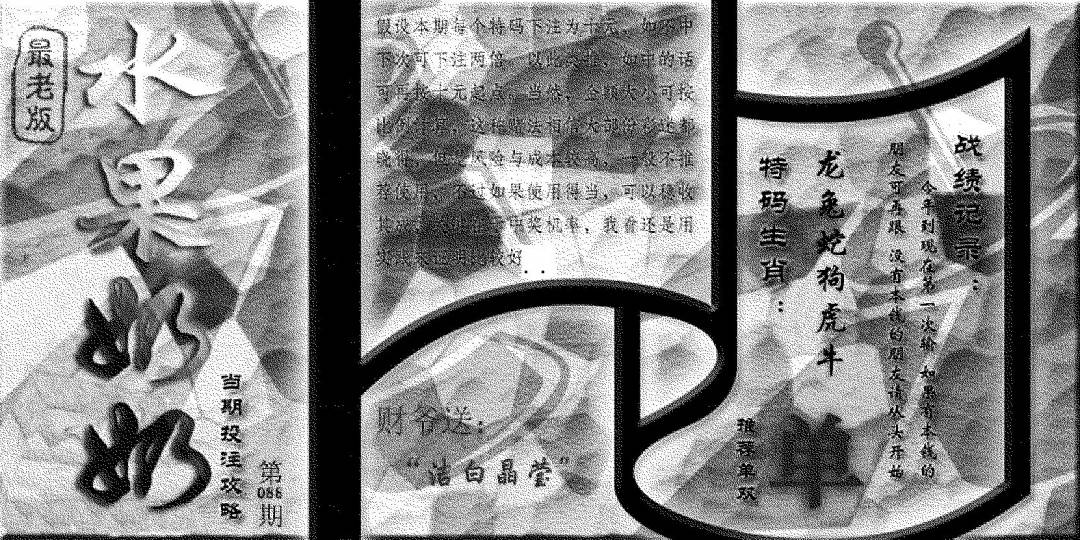 最老版
水果奶奶
当期投注攻略
第
086
期
假设本期每个特码下注为十元，如不中
下次可下注两倍，以此类推，如中的话
可再按十元起点。当然，金额大小可按
比例，这种赌法相信大部份彩迷都
晓得，但是风险与成本较高，一般不推
荐使用，不过如果使用得当，可以稳收
中奖机率，我看还是用
比较好
财爷送：
“洁白晶莹”
特码生肖：
龙兔蛇狗虎牛
推荐单双
单
战绩记录：
今年到现在第一次输 如果有本钱的
朋友可再跟 没有本钱的朋友请从头开始